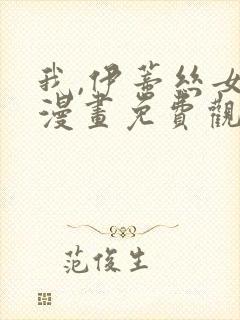 我,伊蒂絲女
漫畫免費觀
范俊生